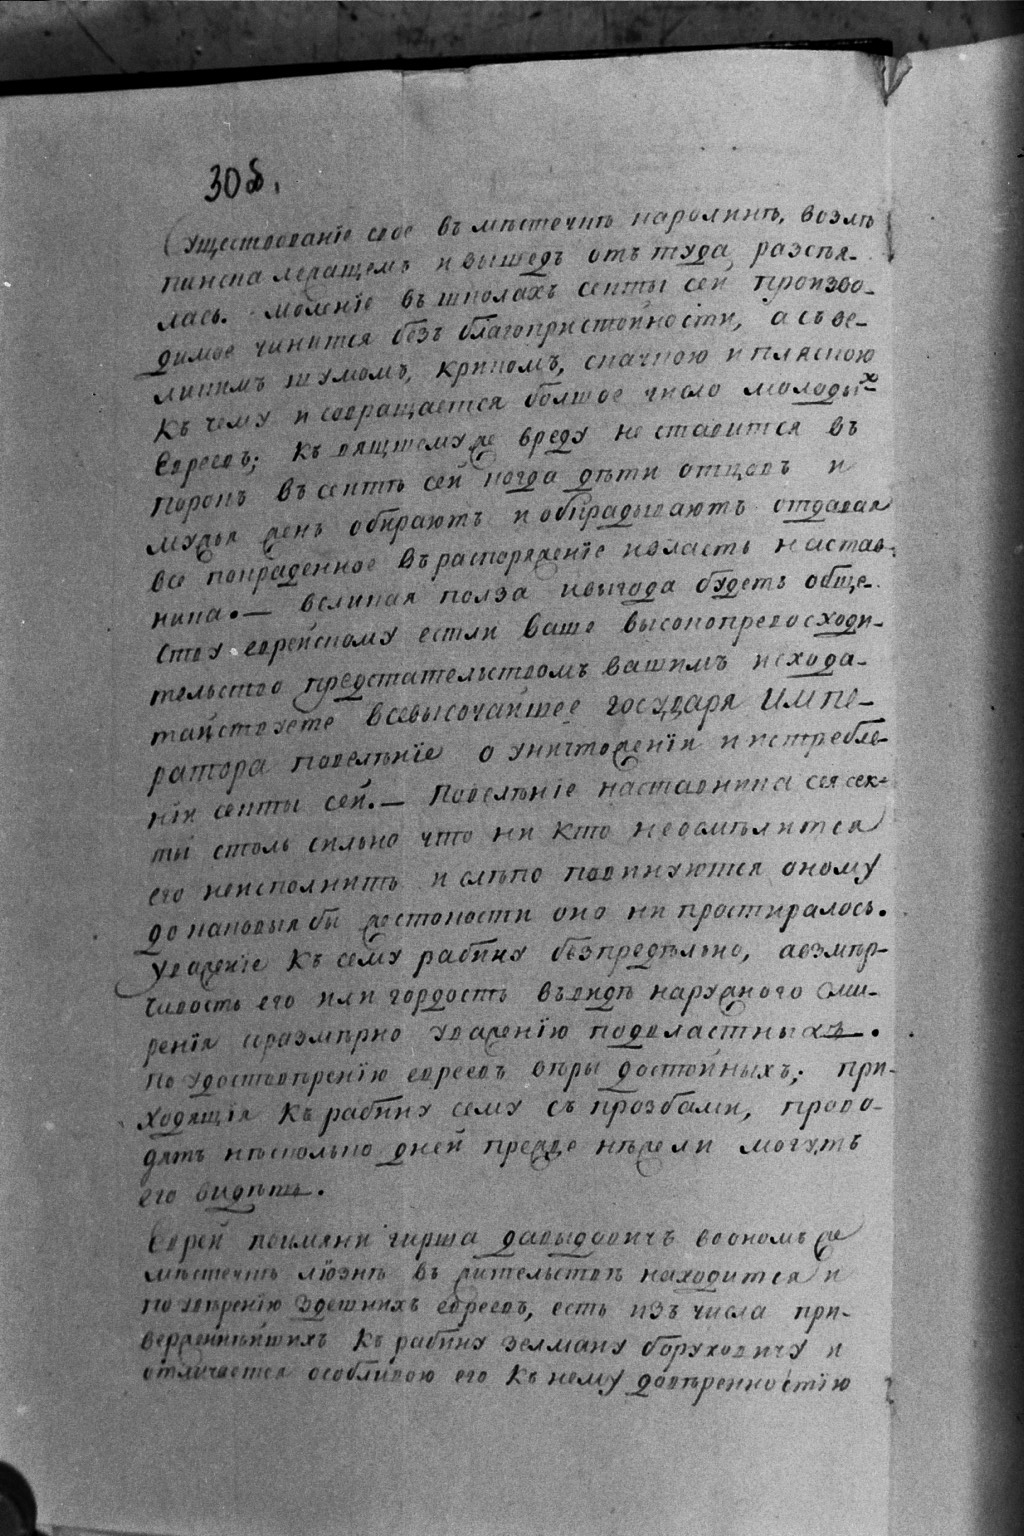 30 об.
Существованіе свое въ мѣстечкѣ каролинѣ, возлѣ
пинска лежащемъ и вышедъ отъ туда разсѣя-
лась. моленіе въ школахъ секты сей произво-
димое чинится безъ благопристойности, а съ ве-
ликимъ шумомъ, крикомъ, скачкою и пляскою
Къ чему и совращается болшое число молодыхъ
Евреевъ; Къ вящшему же вреду не ставится въ
порокъ въ сектѣ сей когда дѣти отцовъ и
мужья женъ обираютъ и обкрадываютъ отдавая
все покраденное въ распоряженіе и власть настав-
ника. — великая полза и выгода будетъ обще-
ству еврейскому естли ваше высокопревосходи-
тельство предстательствомъ вашимъ исхода-
тайствуете Всевысочайшее государя Импе-
ратора повелѣніе о уничтоженія и истребле-
нія секты сей. — Повелѣніе наставника сея сек-
ты столь сильно что ни кто не осмѣлится
его неисполнить и слѣпо повинуются оному
до каковыя бы жестокости оно ни простиралось.
Уваженіе Къ сему рабину безпредѣльно, а взмѣр-
чивость его или гордость въ видѣ наружного сми-
ренія соразмѣрно уваженію подвластныхъ.
По удостовѣренію евреевъ вѣры достойныхъ; при-
ходящія Къ рабину сему съ прозбами, прово-
дятъ нѣсколько дней прежде нѣжели могутъ
его видѣть.
Еврей поимяни гирша давыдовичъ во ономъ же
мѣстечкѣ лiознѣ въ жительствѣ находится и
по увѣренію здешнихъ евреевъ, есть изъ числа при-
верженнѣйшихъ Къ рабину зелману боруховичу и
отличается особливою его Къ нему довѣренностію